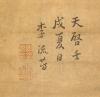 天啓壬
戌夏日
李流芳